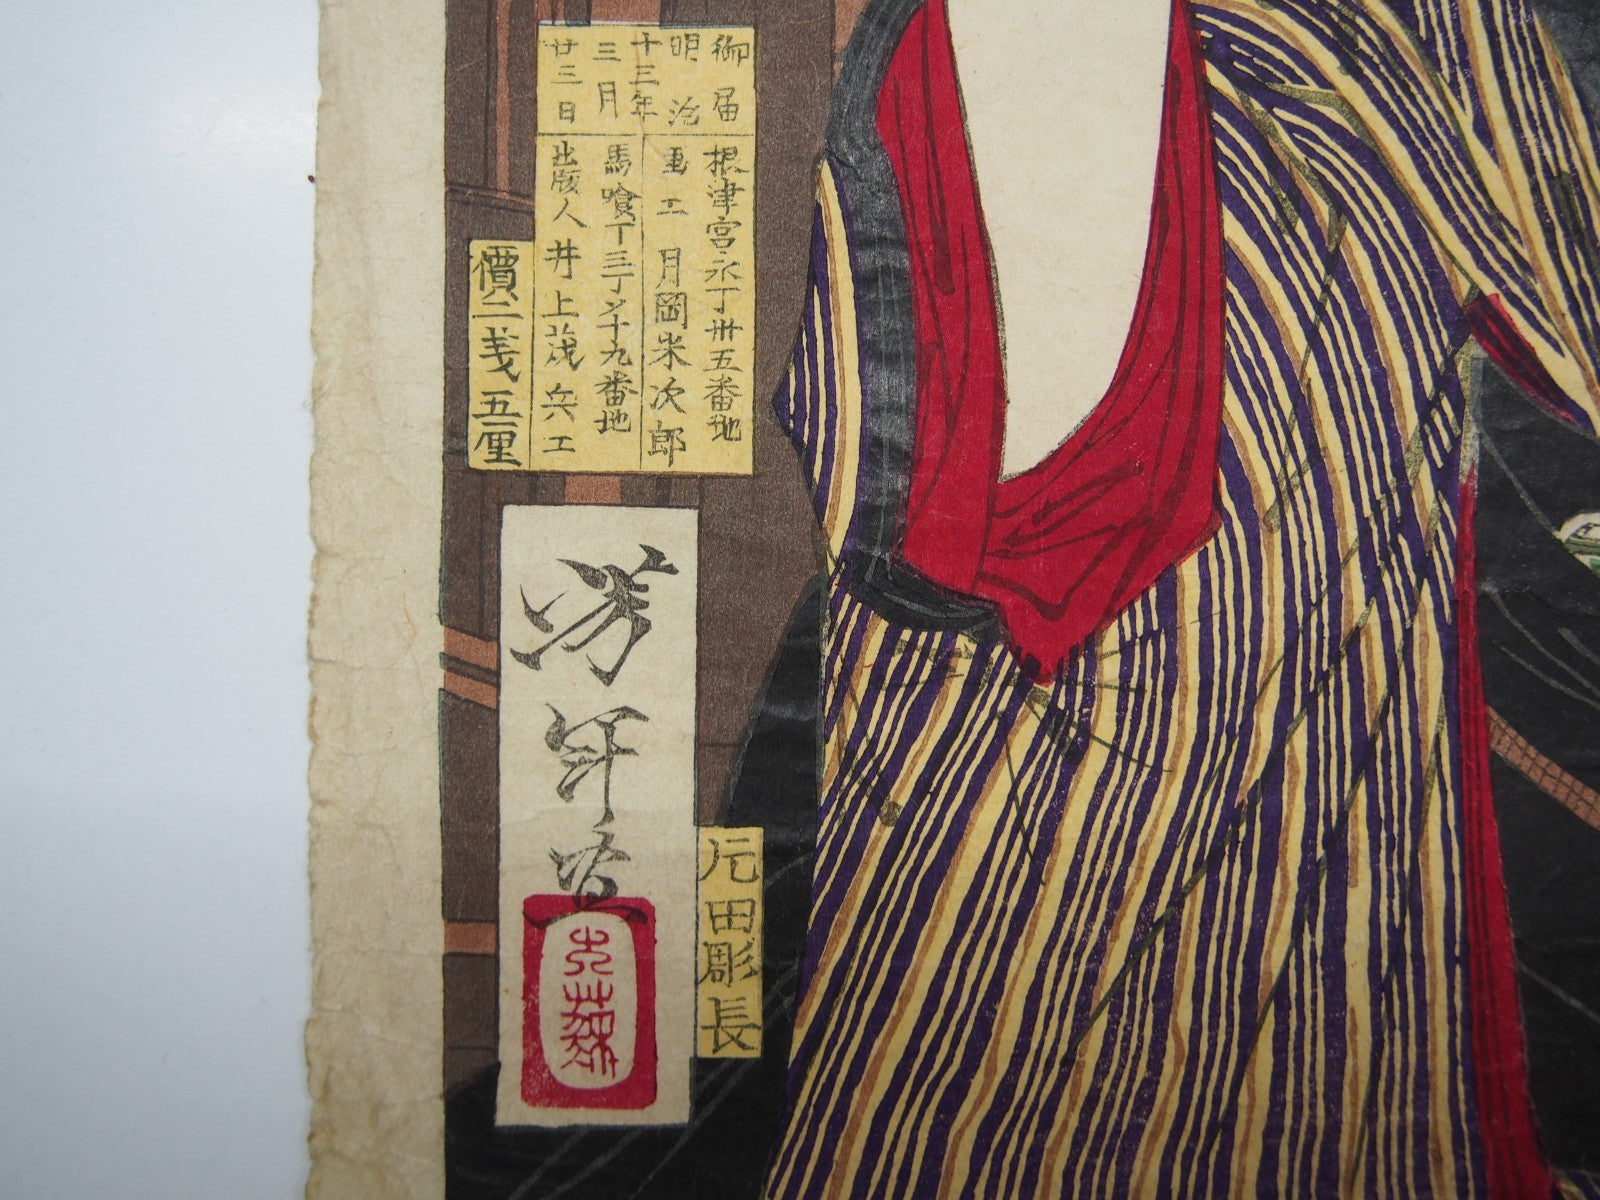 御届
明治
十三年
三月
廿三日
根津宮永丁卅五番地
画工 月岡米次郎
馬喰丁三丁メ十九番地
出版人 井上茂兵エ
價二戔五厘
芳年
大蘇
元田彫長